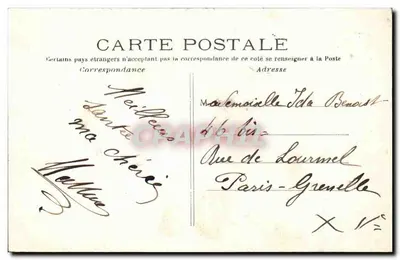 CARTE POSTALE
Certains pays étrangers n'acceptant pas la correspondance de ce coté se renseigner à la Poste
Correspondance
Adresse
Meilleure
Santé
ma chérie
Mademoiselle Ida Benoist
46 bis
Rue de Lourmel
Paris-Grenelle
X Ve